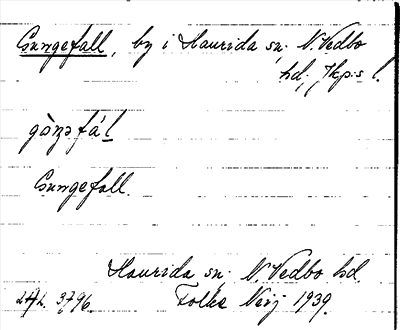 Gungefall, by i Haurida sn. N. Vedbo
hd., Jkp:s l.
gòŋəfál
Gungefall.
Haurida sn. N. Vedbo hd.
3796. Folke Neij 1939.